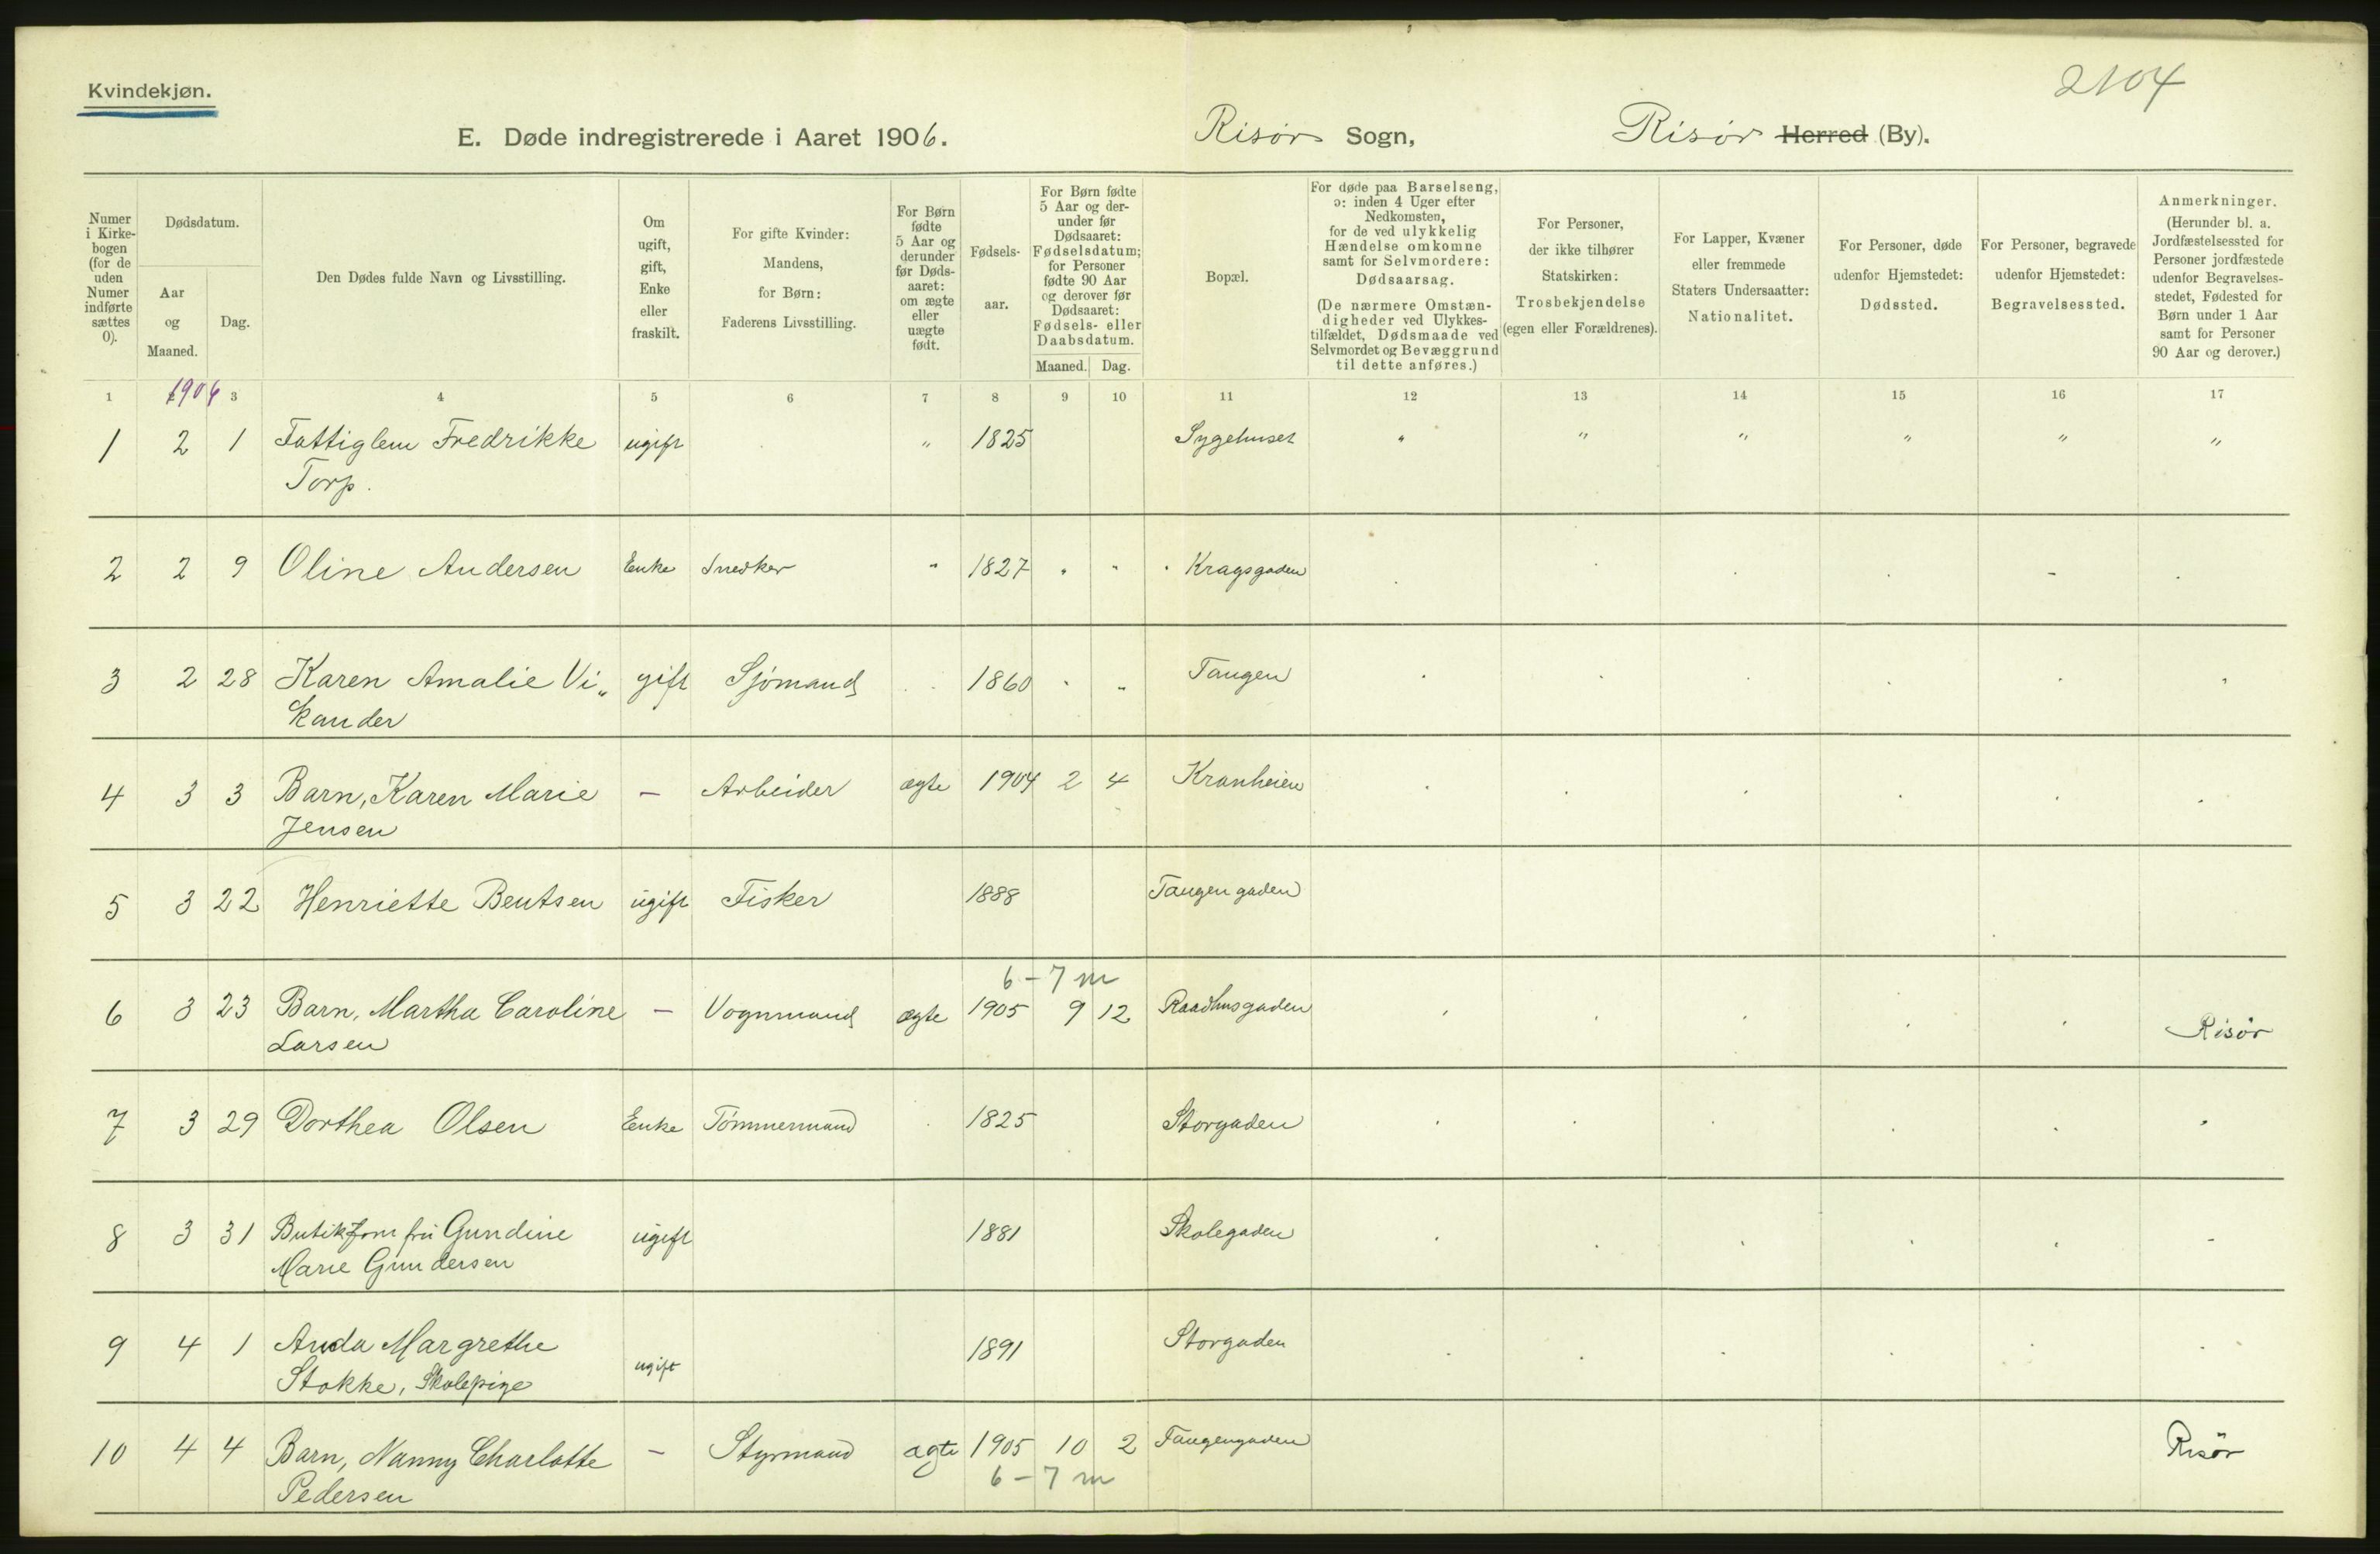 Kvindekjøn.
2104
E. Døde indregistrerede i Aaret 1906. Risør Sogn, Risør Herred (By).
Numer i Kirkebogen (for de uden Numer indførte sættes 0).
Dødsdatum.
Aar og Maaned.
Dag.
Den Dødes fulde Navn og Livsstilling.
Om ugift, gift, Enke eller fraskilt.
For gifte Kvinder: Mandens, for Børn: Faderens Livsstilling.
For Børn fødte 5 Aar og derunder før Dødsaaret: om ægte eller uægte født.
Fødselsaar.
For Børn fødte 5 Aar og derunder før Dødsaaret: Fødselsdatum; for Personer fødte 90 Aar og derover før Dødsaaret: Fødsels- eller Daabsdatum.
Maaned. Dag.
Bopæl.
For døde paa Barselseng, ɔ: inden 4 Uger efter Nedkomsten, for de ved ulykkelig Hændelse omkomne samt for Selvmordere: Dødsaarsag.
(De nærmere Omstændigheder ved Ulykkestilfældet, Dødsmaade ved Selvmordet og Bevæggrund til dette anføres.)
For Personer, der ikke tilhører Statskirken: Trosbekjendelse (egen eller Forældrenes).
For Lapper, Kvæner eller fremmede Staters Undersaatter: Nationalitet.
For Personer, døde udenfor Hjemstedet: Dødssted.
For Personer, begravede udenfor Hjemstedet: Begravelsessted.
Anmerkninger.
(Herunder bl. a. Jordfæstelsessted for Personer jordfæstede udenfor Begravelsesstedet, Fødested for Børn under 1 Aar samt for Personer 90 Aar og derover.)
1 1906 3 4 5 6 7 8 9 10 11 12 13 14 15 16 17
1 2 1 Fattiglem Fredrikke ugift " 1825 Sygehuset " " " " " "
Torp.
2 2 9 Oline Andersen Enke Snedker " 1827 " " Kragsgaden
3 2 28 Karen Amalie Vi„ gift Sjømand 1860 " " Tangen
kander
4 3 3 Barn, Karen Marie — Arbeider ægte 1904 2 4 Kranheien
Jensen
5 3 22 Henriette Bentsen ugift Fisker 1888 Tangengaden
6 – 7 m
6 3 23 Barn, Martha Caroline — Vognmand ægte 1905 9 12 Raadhusgaden Risör
Larsen
7 3 29 Dorthea Olsen Enke Tömmermand 1825 Storgaden
8 3 31 Butikjomfru Gundine ugift 1881 Skolegaden
Marie Gundersen
9 4 1 Anda Margrethe ugift 1891 Storgaden
Stokke, Skolepige
10 4 4 Barn, Nanny Charlotte — Styrmand ægte 1905 10 2 Tangengaden Risör
6 – 7 m
Pedersen